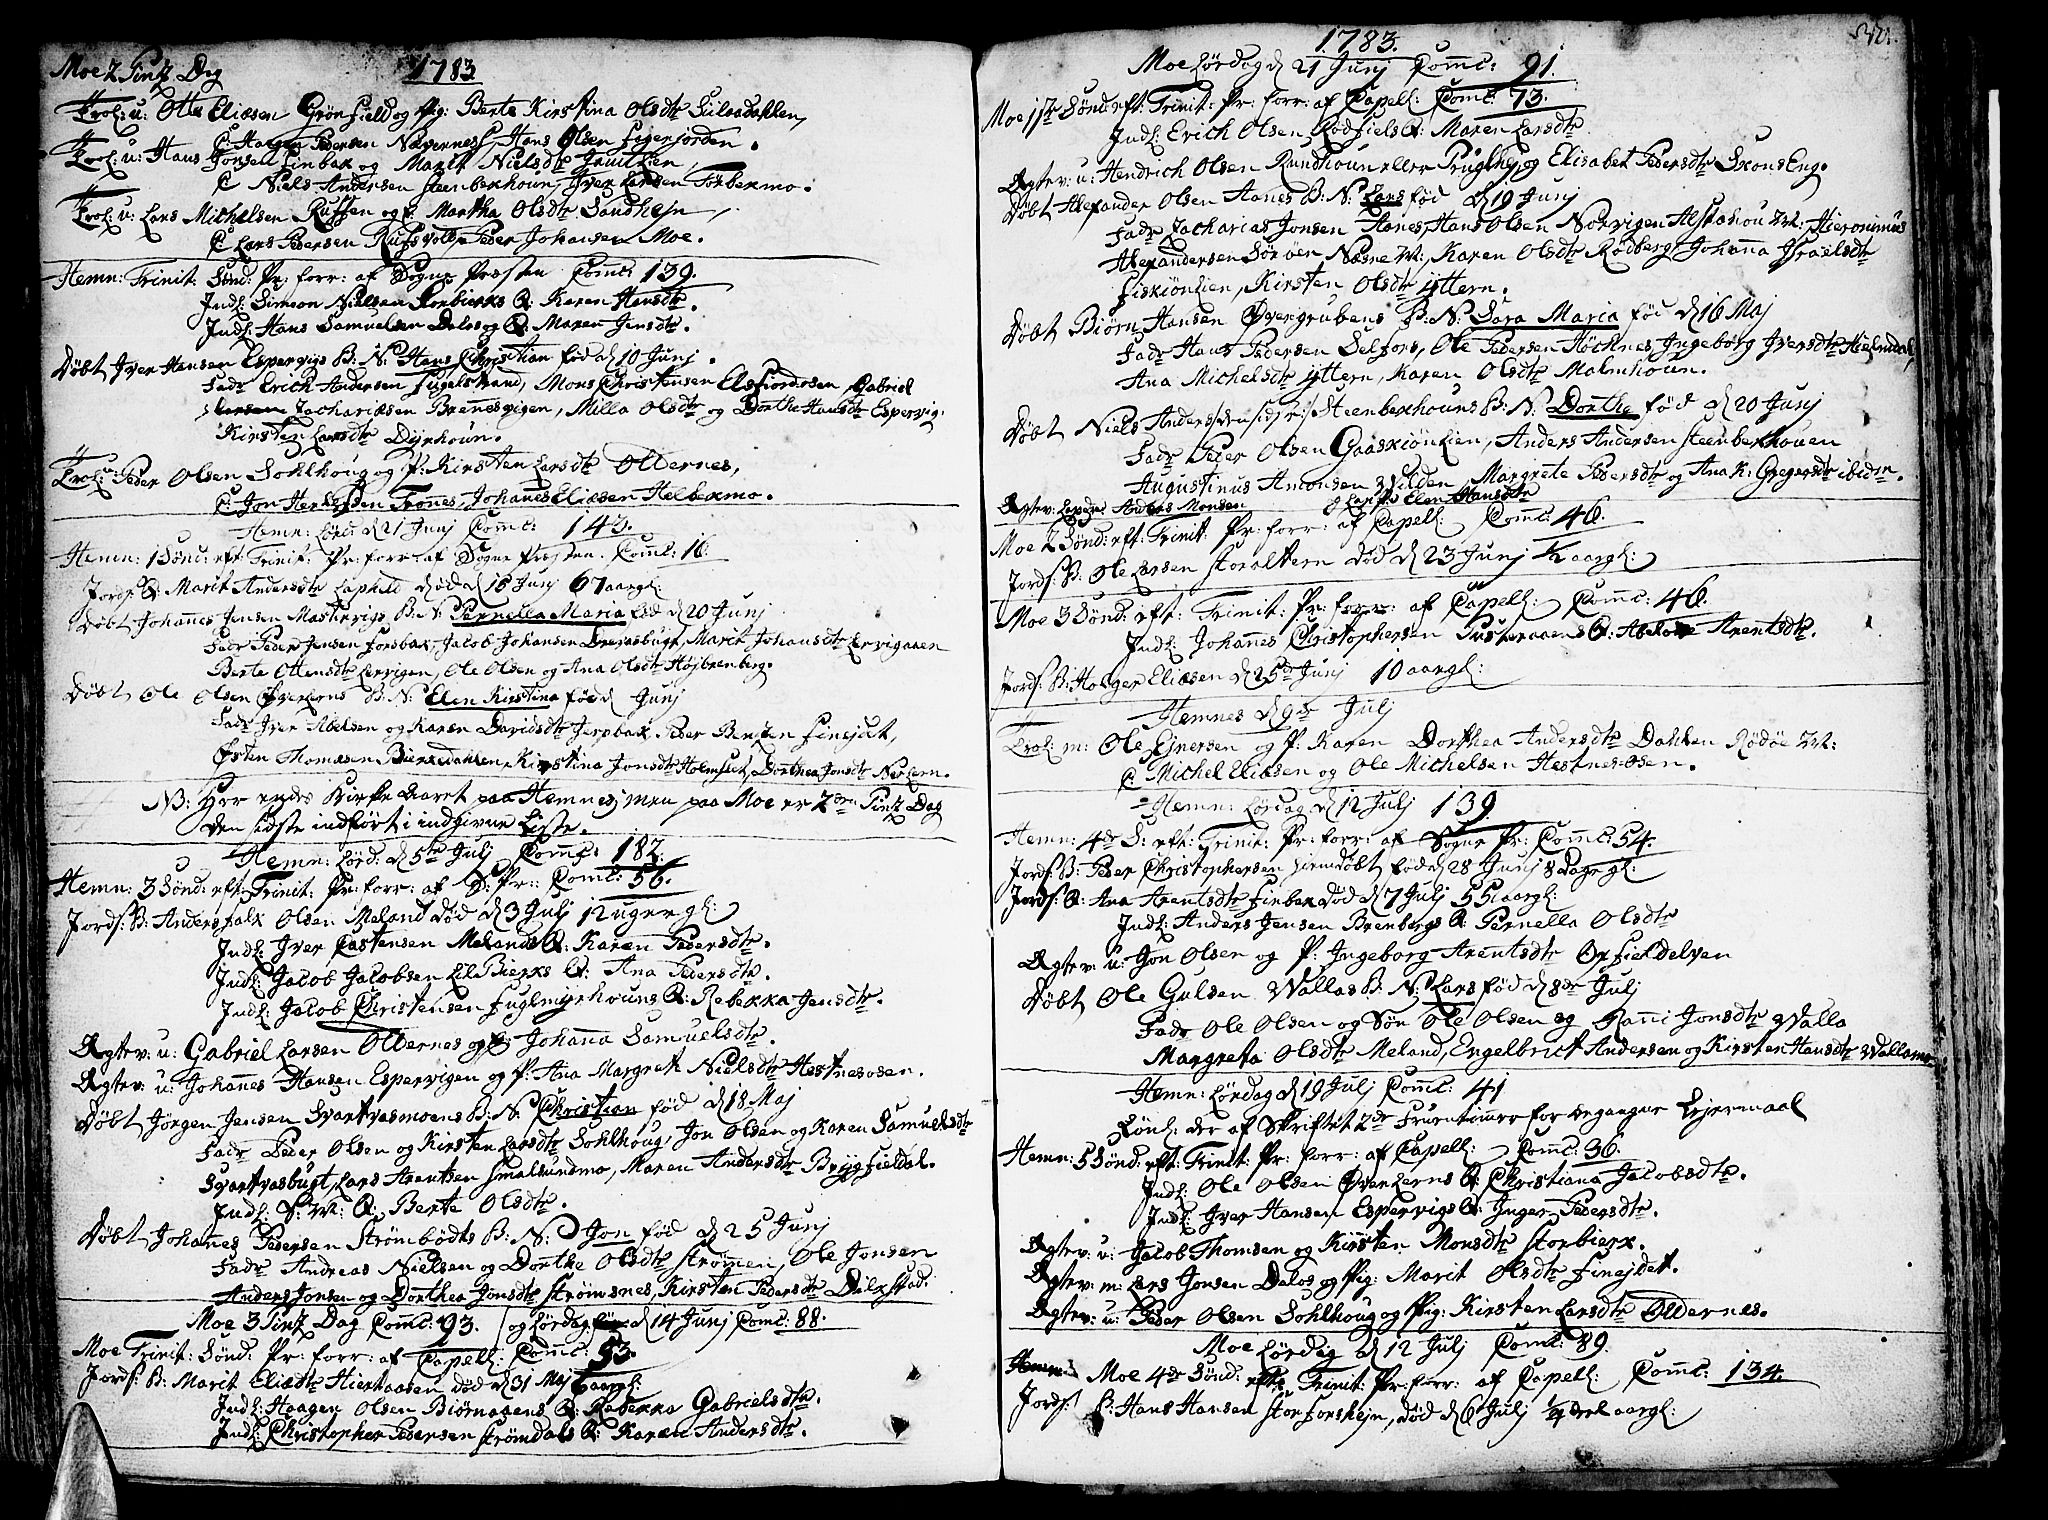 Moe 2 Pintz Dag 1783
Trol: u: Otte Eliæsen Grønfield og Pig: Berte Kirstina Olsdtr
C Haagen Pedersen Nævernes, Hans Olsen
Trol: u: Hans Jonsen Finbak og Marit Nielsdtr
C Niels Andersen Steenbekhoun, Iver Larsen
Trol: u: Lars Michelsen og P: Martha Olsdtr Sandhejn,
C Lars Pedersen Peder Johansen Moe.
Hemn: Trinit: Sønd: Pr: forr: af Sogne Presten Comc: 139.
Indl: Simeon Nielsen Q: Karen Hansdtr.
Indl: Hans Samuelsen Dalos Q: Maren Jensdtr.
Døbt Iver Hansen Espervigs B: N: Hans Christian fød d 10 Junj.
Fadr Erich Andersen Fugelstrand, Mons Christensen Elsfiordosen, Gabriel
Zachariæsen Brennesvigen, Milla Olsdtr og Dorthe Hansdtr Espervig.
Kirsten Larsdtr Dyrhoun.
Trol: u: Peder Olsen Sohlhoug og P: Kirsten Larsdtr Oldernes,
C: Jon Frones, Johanes Eliæsen
Hemn: Lørd: d 21 Junj Comc: 143.
Hemn: 1 Sønd: eft: Trinit: Pr: forr: af Sogne Presten. Comc: 16.
Jords: Q: Marit Andersdtr død d 16 Junj 67 aargl:
Døbt Johannes Jensen B: N: Pernella Maria fød d 20 Junj
Fadr Peder Jensen Forsbak, Jacob Johansen, Marit Johansdtr Lervigaaen
Berte Ottensdtr Lervigen, Ole Olsen og Ana Olsdtr Højbrenberg.
Døbt Ole Olsen Øverlerns B: N: Elen Kirstina fød d Junj
Fadr Iver Nielsen og Karen Davidsdtr Jerpbak, Peder Finejdet,
Østen Thomæsen, Kirstina Jonsdtr Holmslet, Dorthea Jonsdtr
NB: Her ends Kirke Aaret paa Hemnes, men paa Moe er 2den Pintz Dag
den sidste indført i indgivne Liste.
Hemn: Lørd: d 5te Julj Comc: 182.
Hemn: 3 Sønd: eft: Trinit: Pr: forr: af S: Pr: Comc: 56.
Jords: B: Anders Falk Olsen Meland død d 3 Julj 12 uger gl:
Indl: Iver Castensen Melands Q: Karen Pedersdtr.
Indl: Jacob Jacobsen Lil Bierks Q: Ana Pedersdtr.
Indl: Jacob Christensen Fuglmyrhouns Q: Rebekka Jensdtr.
Egtev: u: Gabriel Larsen Oldernes og P: Johana Samuelsdtr.
Egtev: u: Johannes Hansen Espervigen og P: Ana Margret Nielsdtr Hestnesosen.
Døbt Jørgen Jensen Svartvasmoens B: N: Christian fød d 18 Maj
Fadr Peder Olsen og Kirsten Larsdtr Sohlhoug, Jon Olsen og Karen Samuelsdtr
Svartvasbugt, Lars Arentsen Smalsundmo, Maren Andersdtr Brygfieldal.
Indl: S: V: Q: Berte Olsdtr.
Døbt Johannes Pedersen Strømbødts B: N: Jon fød d 25 Junj
Fadr Andreas Nielsen og Dorthe Olsdtr Strømen, Ole Jonsen
Anders Jonsen og Dorthea Jonsdtr Strømsnes, Kirsten Pedersdtr Dalxstad.
Moe 3 Pintz Dag Comc: 93. og Lørdag d 14 Junj Comc: 88.
Moe Trinit: Sønd: Pr: forr: af Capell: Comc: 53.
Jords: B: Marit Eliædtr død d 31 Maj 6 aargl:
Indl: Haagen Olsen Biørnaaens Q: Rebekka Gabrielsdtr.
Indl: Christopher Pedersen Strømdals Q: Karen Andersdtr.
1783.
Moe Lørdag d 21 Junj Comc: 91.
Moe 1ste Sønd: eft: Trinit: Pr: forr: af Capell: Comc: 73.
Indl: Erich Olsen Rødfiels Q: Maren Larsdtr
Egtev: u: Hendrich Olsen Rundhoun eller og Elisabet Pedersdtr
Døbt Alexander Olsen Hanes B: N: Lars fød d 19 Junj
Fadr Zacharias Jonsen Hanes, Hans Olsen Norvigen Alstahou M:, Hieronimus
Alexandersen Sørøen Næsne M:, Karen Olsdtr Rødberg, Johana Israelsdtr
Fiskiønlien, Kirsten Olsdtr Yttern.
Døbt Biørn Hansen Øvergrubens B: N: Sara Maria fød d 16 Maj
Fadr Hans Pedersen Selfors, Ole Pedersen Høcknes, Ingeborg Iversdtr
Ana Michelsdtr Ytteren, Karen Olsdtr Malmhoun.
Døbt Niels Andersen Steenbekhouns B: N: Dorthe fød d 20 Junj
Fadr Peder Olsen Gaaskiønlien, Anders Andersen Steenbekhouen
Augustinus Amonsen Vilden, Margrete Pedersdtr og Ana K: Gregersdtr ibidm.
Egtev: Anders Monsen Elen Hansdtr
Moe 2 Sønd: eft: Trinit: Pr: forr: af Capell: Comc: 46.
Jords: B: Ole Larsen Storaltern død d 23 Junj ½ aargl:
Moe 3 Sønd: eft: Trinit: Pr: forr: af Capell: Comc: 46.
Indl: Johannes Christophersen Q: Arentsdtr.
Jords: B: Holger Eliæsen d 25 Junj 10 aargl:
Hemnes d 9de Julj
Trol: m: Ole Ejnersen og P: Karen Dorthea Andersdtr Dahlen Rødøe M:
C Michel Eliæsen og Ole Michelsen Hestnes-osen.
Hemn: Lørdag d 12 Julj 139.
Hemn: 4de S: eft: Trinit: Pr: forr: af Sogne Pr: Comc: 54.
Jords: B: Peder Christophersen hiemdøbt fød d 28 Junj 8 Dage gl:
Jords: Q: Ana Arentsdtr Finbak død d 7 Julj 55 aargl:
Indl: Anders Jensen Brenbergs Q: Pernella Olsdtr
Egtev: u: Jon Olsen og P: Ingeborg Arentsdtr Oxfieldelven
Døbt Ole Gulsen Vallas B: N: Lars fød d 8de Julj
Fadr Ole Olsen og Søn Ole Olsen og Rani Jonsdtr Valla
Margreta Olsdtr Meland, Engelbrict Andersen og Kirsten Hansdtr
Hemn: Lørdag d 19 Julj Comc: 41
der af Skriftet 2de Fruentimre for begangne Lejermaal
Hemn: 5 Sønd: eft: Trinit: Pr: forr: af Capell: Comc: 36.
Indl: Ole Olsen Øverlerns Q: Christiana Jacobsdtr.
Indl: Iver Hansen Espervigs Q: Inger Pedersdtr.
Egtev: u: Jacob Thomsen og Kirsten Monsdtr Storbierk.
Egtev: m: Lars Jonsen Dalos og Pig: Marit Olsdtr Finejdet.
Egtev: u: Peder Olsen Sohlhoug og Pig: Kirsten Larsdtr Oldernes.
Moe Lørdag d 12 Julj Comc: 89.
Moe 4de Sønd: eft: Trinit: Pr: forr: af Capell: Comc: 134.
Jords: B: Hans Hansen Storforshejn, død d 6 Julj ¼ deel aargl: